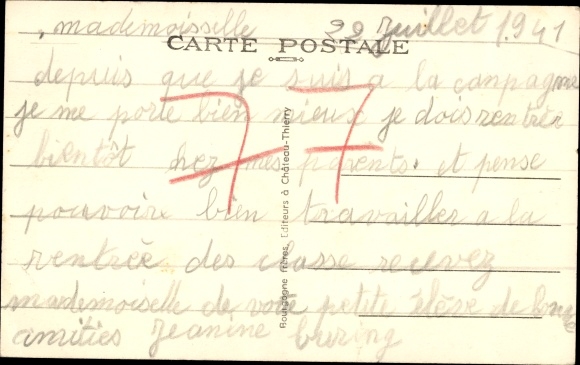 , mademoisselle 29 Juillet 1941
CARTE POSTALE
depuis que je suis a la canpagne
je me porte bien mieux je dois rentrer
bientôt hez mes parents. et pense
pouvoire bien travailler a la
rentrée des classe recevez
mademoiselle de votre petite élève de bonne
amities Jeanine buring
77
Bourgogne frères, Editeurs à Château-Thierry